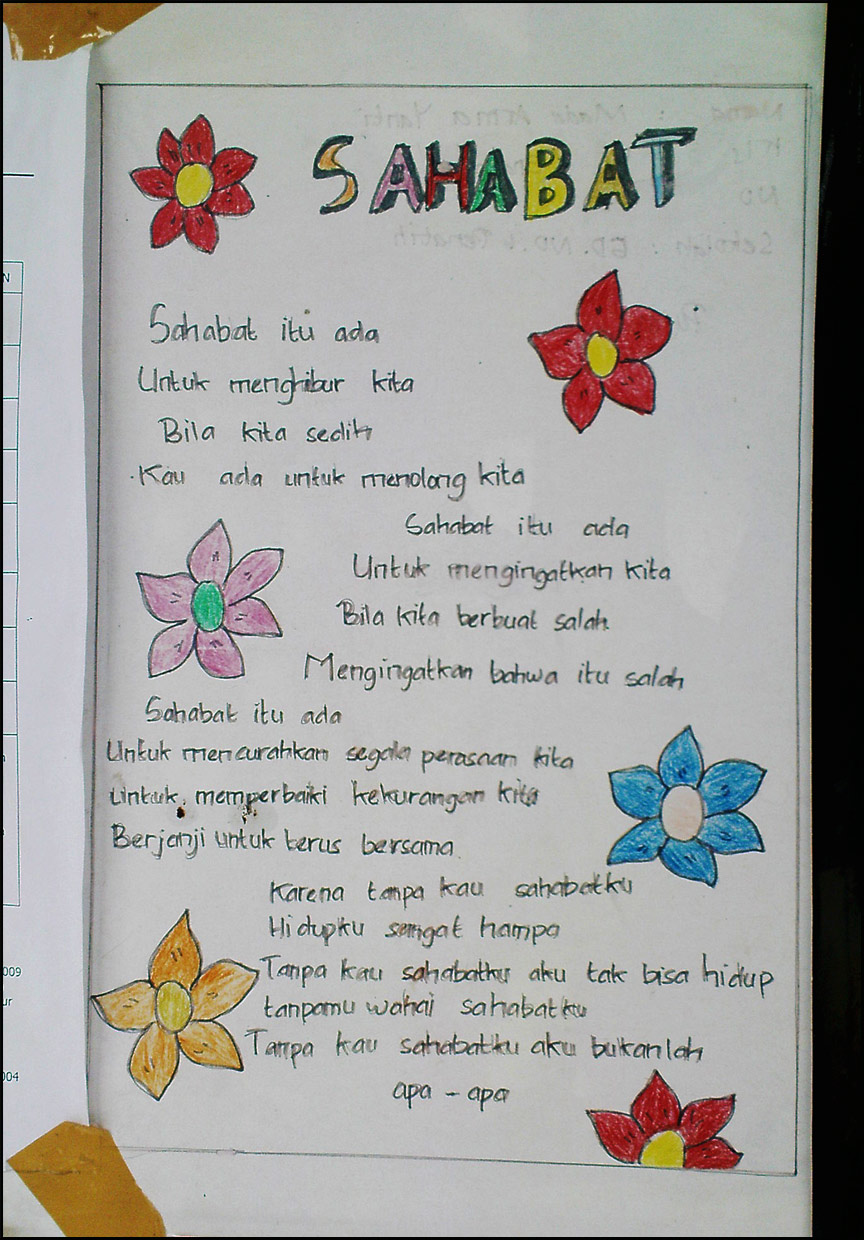 SAHABAT
Sahabat itu ada
Untuk menghibur kita
Bila kita sedih
Kau ada untuk menolong kita
Sahabat itu ada
Untuk mengingatkan kita
Bila kita berbuat salah
Mengingatkan bahwa itu salah
Sahabat itu ada
Untuk mencurahkan segala perasaan kita
Untuk memperbaiki kekurangan kita
Berjanji untuk terus bersama
Karena tanpa kau sahabatku
Hidupku sangat hampa
Tanpa kau sahabatku aku tak bisa hidup
tanpamu wahai sahabatku
Tanpa kau sahabatku aku bukanlah
apa - apa
N
009
ur
004